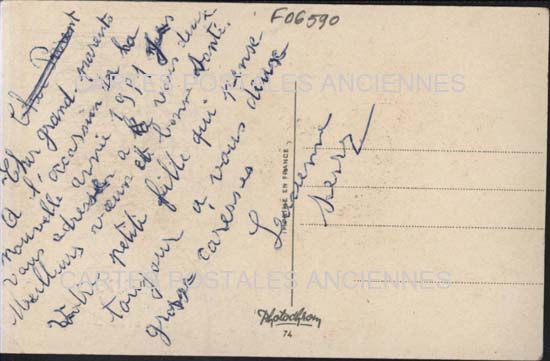 F06590
Cher Parent
Cher grand parents
A l'occasion de la
nouvelle année 1951 je
vous adresse a vous deux
Meilleurs vœux et bonne Santé.
Votre petite fille qui pense
toujour à vous deux
grosse caresses
Serry
CARTES POSTALES ANCIENNES
CARTES POSTALES ANCIENNES
EN FRANCE
Photochrom
74